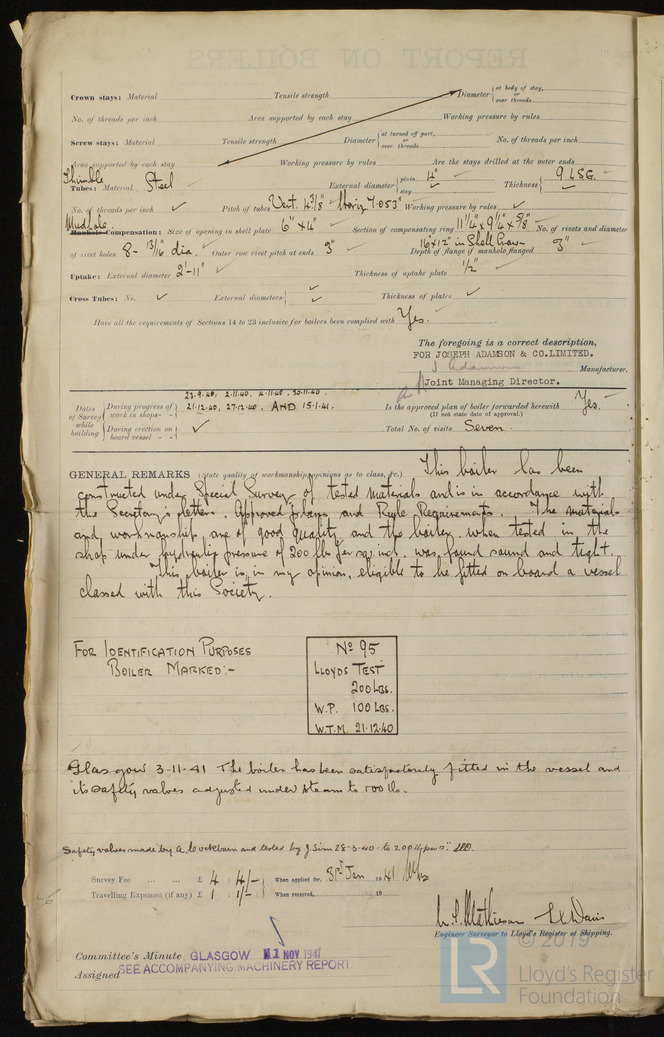 REPORT ON BOILERS
Crown stays: Material Tensile strength Diameter { at body of stay, or over threads
No. of threads per inch Area supported by each stay Working pressure by rules
Screw stays: Material Tensile strength Diameter { at turned off part, or over threads No. of threads per inch
Area supported by each stay Working pressure by rules Are the stays drilled at the outer ends
Thimble
Tubes: Material Steel External diameter { plain 4" stay Thickness { 9 LSG.
No. of threads per inch ✓ Pitch of tubes Vert. 4 3/8" Horiz 7.053" Working pressure by rules ✓
Mudhole
Manhole Compensation: Size of opening in shell plate 6" x 4" Section of compensating ring 11 1/4 x 9 1/4 x 5/8" No. of rivets and diameter
of rivet holes 8 - 13/16 dia. Outer row rivet pitch at ends 3" Depth of flange if manhole flanged 3"
16x12" in Shell
Uptake: External diameter 2'-11" Thickness of uptake plate 1/2"
Cross Tubes: No. ✓ External diameters { ✓ ✓ Thickness of plates ✓
Have all the requirements of Sections 14 to 23 inclusive for boilers been complied with Yes.
The foregoing is a correct description,
FOR JOSEPH ADAMSON & CO.LIMITED.
Manufacturer.
Joint Managing Director.
Dates of Survey while building { During progress of work in shops - - 23.9.40, 2.11.40, 4.11.40, 30.11.40. 21.12.40, 27.12.40, AND 15.1.41.
Is the approved plan of boiler forwarded herewith Yes.
(If not state date of approval.)
During erection on board vessel - - ✓ Total No. of visits Seven.
GENERAL REMARKS (State quality of workmanship, opinions as to class, &c.) This boiler has been
constructed under Special Survey of tested materials and is in accordance with
the Secretary's letters, Approved plans and Rule Requirements. The materials
and workmanship are of good quality and the boiler when tested in the
shop under hydraulic pressure of 200 lbs per sq. inch. was found sound and tight.
This boiler is, in my opinion, eligible to be fitted on board a vessel
classed with this Society.
FOR IDENTIFICATION PURPOSES
BOILER MARKED:-
No 95
LLOYDS TEST
200 LBS.
W.P. 100 LBS.
W.T.M. 21-12-40
Glasgow 3-11-41 The boiler has been satisfactorily fitted in the vessel and
its safety valves adjusted under steam to 100 lb.
Safety valves made by A. Cockburn and tested by J Sim 28-3-40 to 200
Survey Fee ... ... £ 4 : 4/- : When applied for, 31st Jan 1941
Travelling Expenses (if any) £ 1 : 1/- : When received, 19
Engineer Surveyor to Lloyd's Register of Shipping.
Committee's Minute GLASGOW 11 NOV 1941
Assigned SEE ACCOMPANYING MACHINERY REPORT.
© 2019
LR
Lloyd's Register
Foundation